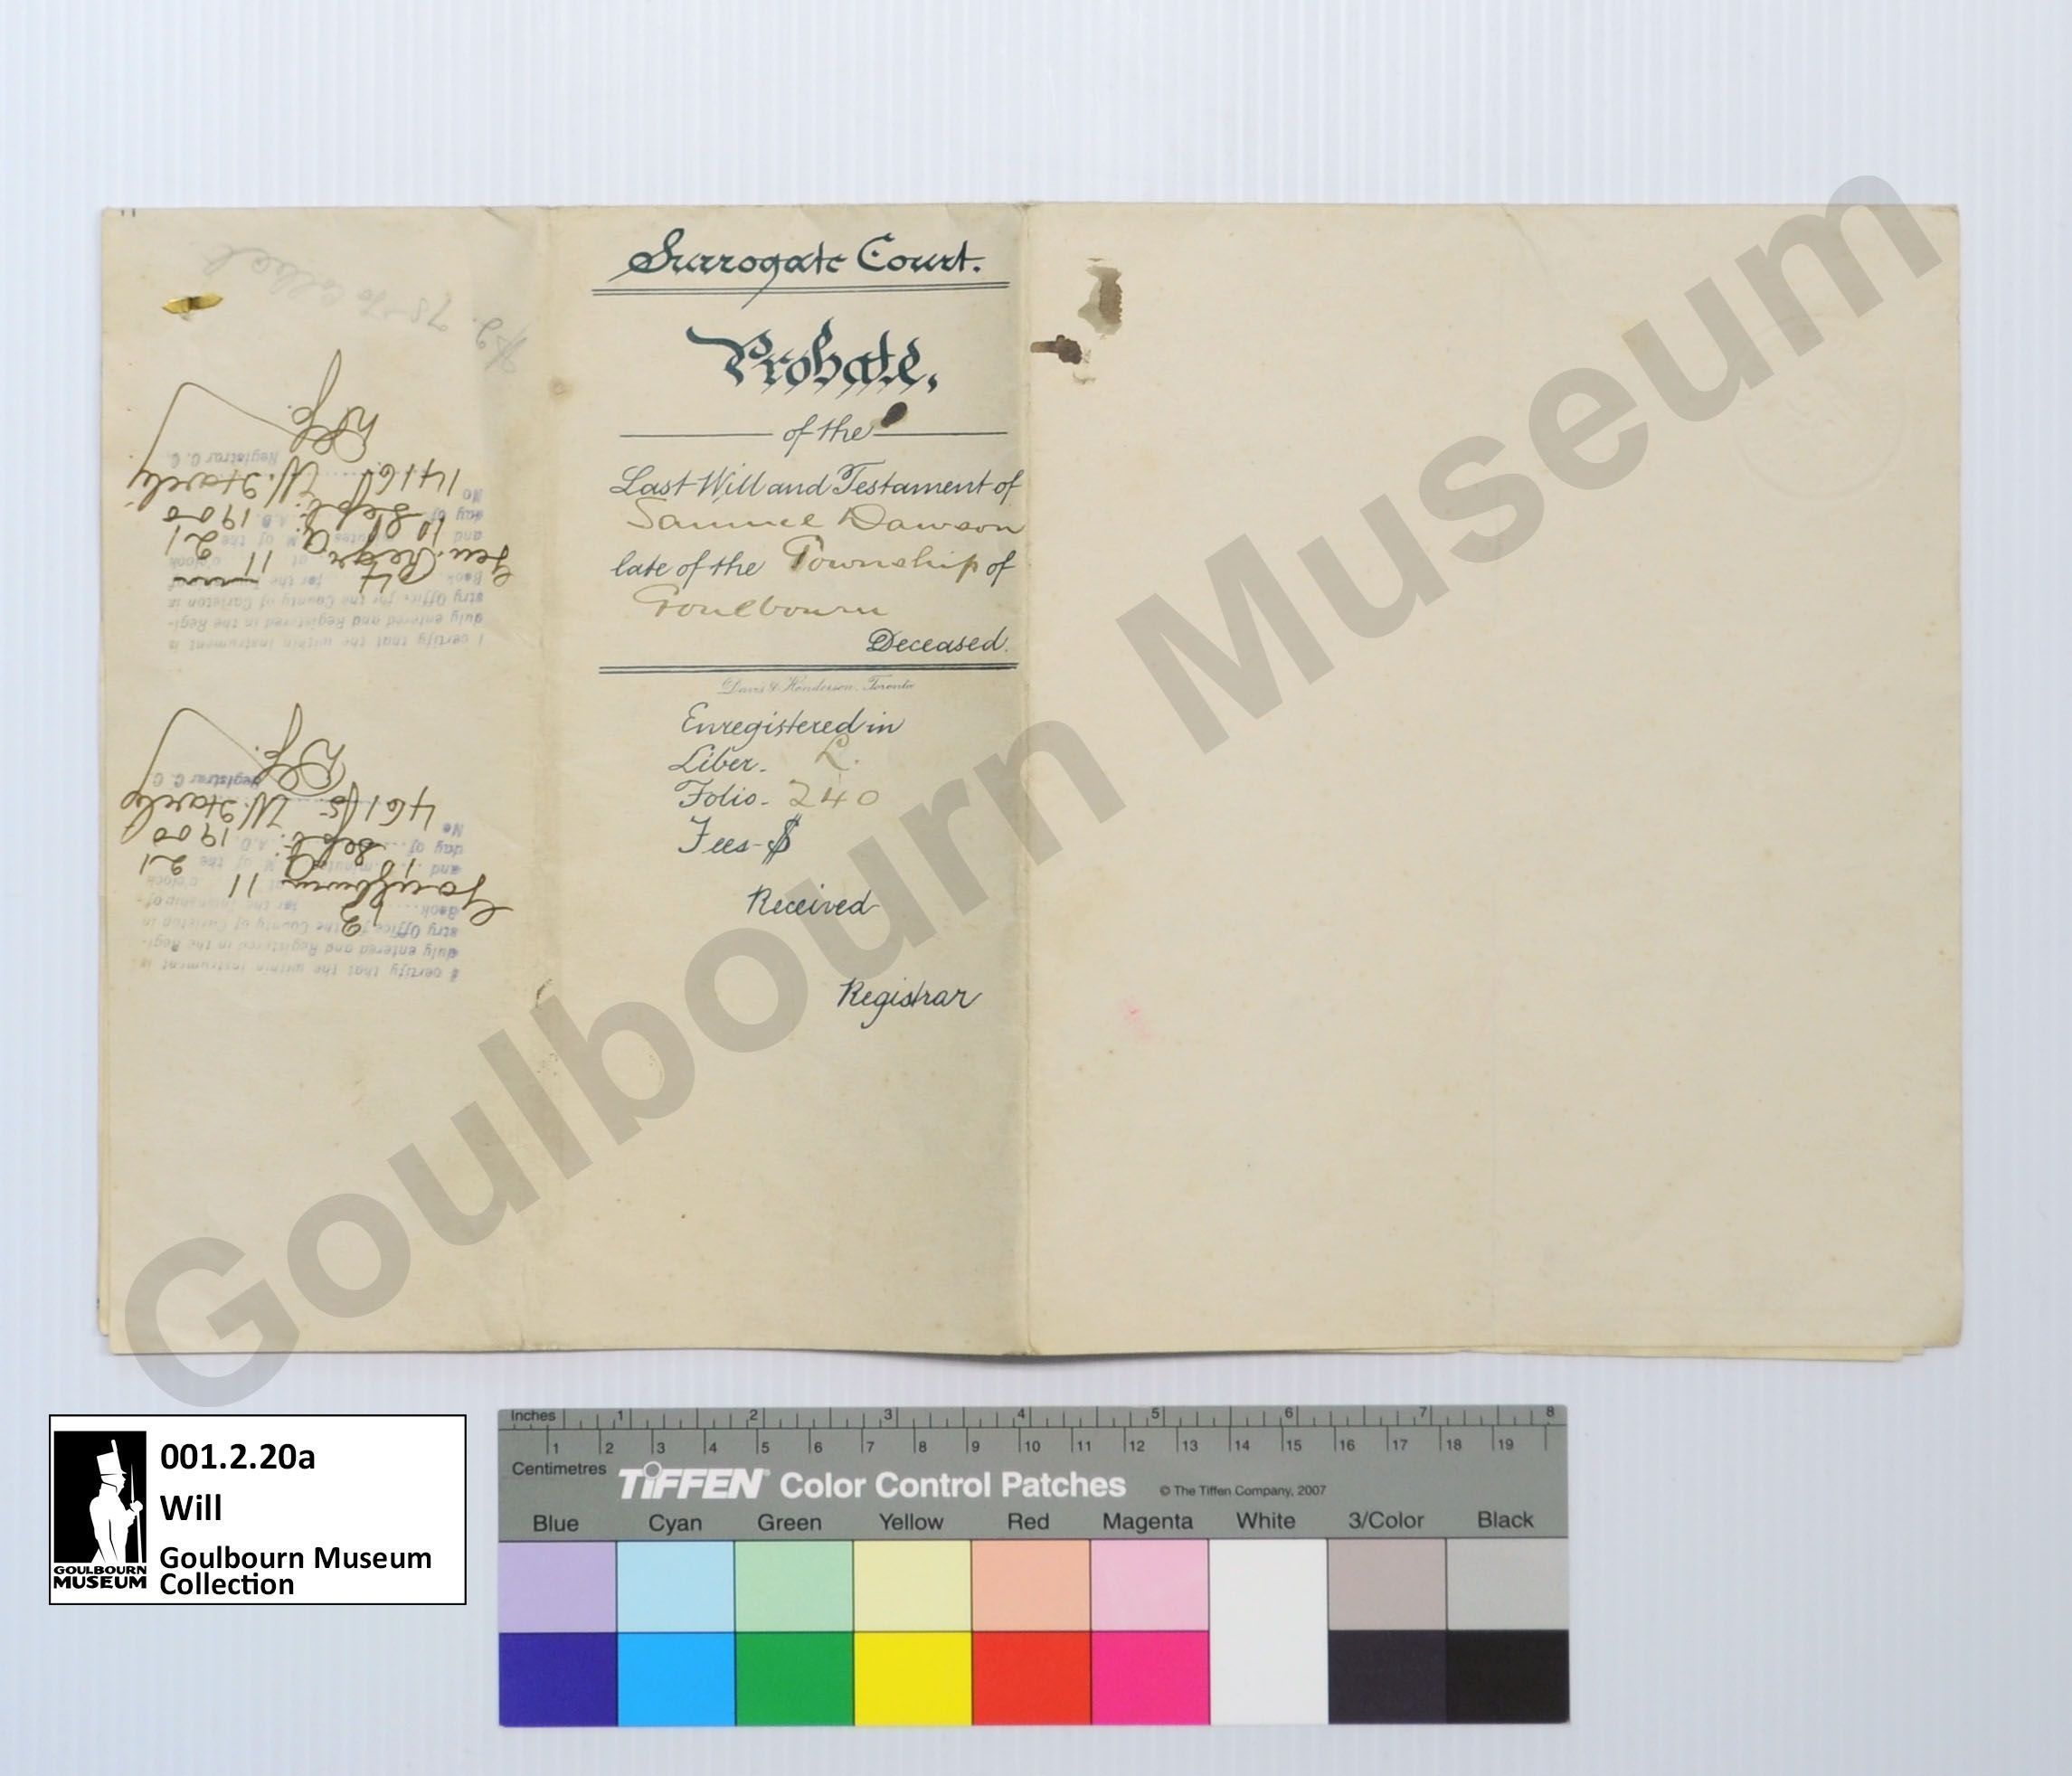 Surrogate Court.
Probate,
of the
Last Will and Testament of
Samuel Dawson
late of the Township of
Goulbourn
Deceased.
Davis & Henderson, Toronto
Enregistered in
Liber. L.
Folio. 240
Fees $
Received
Registrar
I certify that the within instrument is
duly entered and Registered in the Regi-
stry Office for the County of Carleton in
Book for the Township of
Goulbourn 11 o'clock
and minutes M of the 21
day of Sept. A.D. 1900
No
Registrar C. C.
I certify that the within instrument is
duly entered and Registered in the Regi-
stry Office for the County of Carleton in
Book for the
at 11 o'clock
and 10 minutes M of the 21
day of Sept. A.D. 1900
No
Registrar C. C.
Goulbourn Museum
001.2.20a
Will
Goulbourn Museum
Collection
GOULBOURN
MUSEUM
Inches 1 2 3 4 5 6 7 8
1 2 3 4 5 6 7 8 9 10 11 12 13 14 15 16 17 18 19
Centimetres
TIFFEN Color Control Patches © The Tiffen Company, 2007
Blue Cyan Green Yellow Red Magenta White 3/Color Black